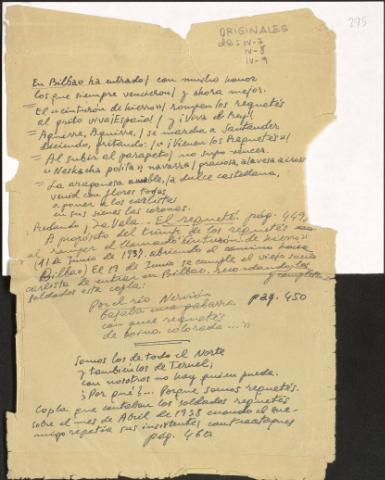 295
ORIGINALES
de: IV-7
IV-8
IV-9
En Bilbao ha entrado / con mucho honor
los que siempre vencieron / y ahora mejor.
= El «cinturón de hierro» / rompen los requetés
al grito viva / España / y ¡Viva de Rey!
= Aguirre, Aguirre, / se marcha a Santander
Diciendo, gritando: / "¡Vienen los Requetés"!
= Al subir al parapeto / no supe vencer.
"Neskacha polita", navarra / graciosa,
= La aragonesa amable, / la dulce castellana,
venid con flores todas
a poner a los carlistas
en sus sienes las coronas.
Redondo / Zavala - El requeté, pág. 449,
A propósito del triunfo de los requetés
al romper el llamado "cinturón de hierro"
(11 de junio de 1937) abriendo el camino hacia
Bilbao) El 19 de Junio se cumple el viejo sueño
carlista de entrar en Bilbao, recordando los
soldados esta copla:
Por el río Nervión
bajaba una gabarra
con once requetés
de boina colorada ..."
pág. 450
Somos los de todo el Norte
y también los de Teruel;
con nosotros no hay quien pueda.
¿Por qué?... Porque somos requetés.
Copla que cantaban los soldados requetés
sobre el mes de Abril de 1938 cuando el ene-
migo repetía sus insistentes contraataques
pág. 460